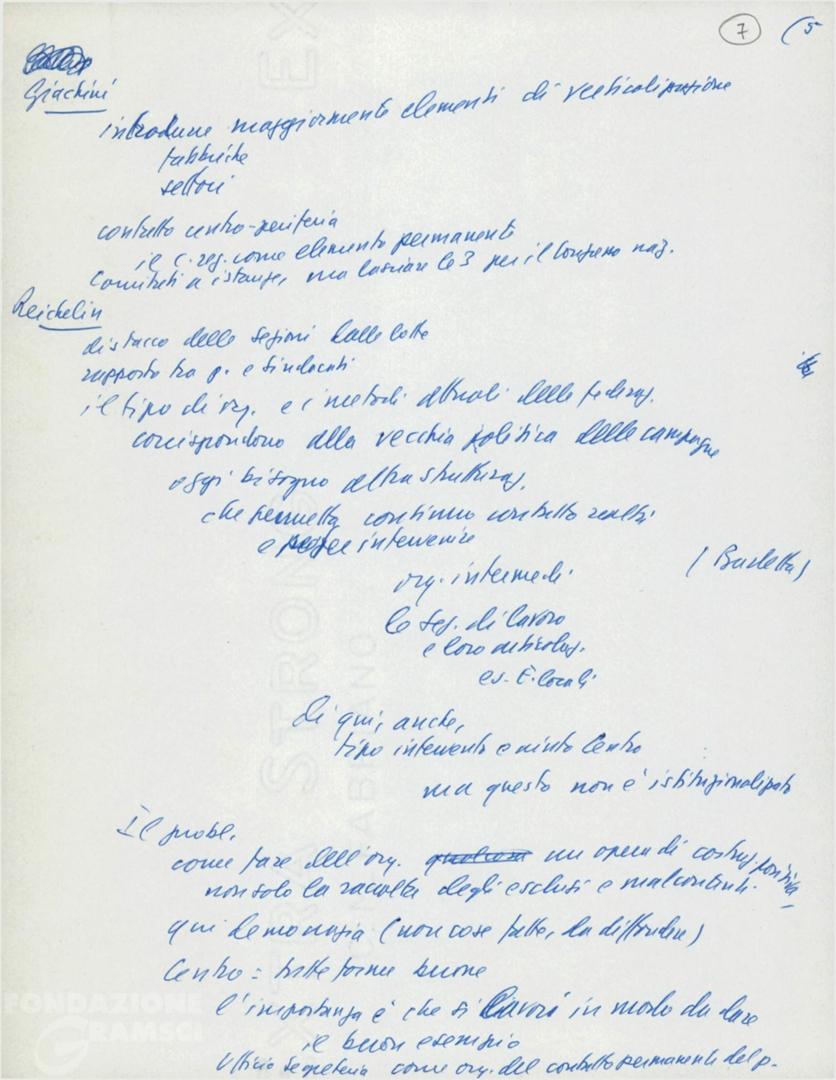 7 (5
Giachini
introdurre maggiormente elementi di verticalizzazione
fabbriche
settori
contatto centro-periferia
il c. reg. come elemento permanente
Comitati a istanze, ma lasciare le 3 per il Congresso naz.
Reichelin
distacco delle sezioni dalle lotte
rapporto tra p. e sindacati
il tipo di org. e i metodi attuali delle federaz.
corrispondono alla vecchia politica delle campagne
oggi bisogno altra strutturaz.
che permetta continuo contatto realtà
e intervenire
org. intermedi (Barletta)
le sez. di lavoro
e loro articolaz.
es. E. locali
di qui, anche,
tipo intervento e aiuto Centro
ma questo non è istituzionalizzato
Il probl.
come fare dell'org. un opera di costruz. positiva
non solo la raccolta degli esclusi e malcontenti.
qui democrazia (non cose fatte, da diffondere)
Centro = tutte forme buone
l'importanza è che si lavori in modo da dare
il buon esempio
Ufficio Segreteria come org. del contatto permanente del p.
EXTRA STRONG
FABRIANO
FONDAZIONE
GRAMSCI